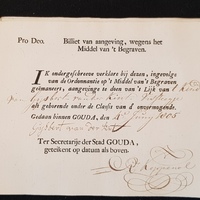 Pro Deo. Billiet van aangeving, wegens het
Middel van 't Begraven.
IK ondergeschreeve verklare bij dezen, ingevolge
van de Ordonnantie op 't Middel van 't Begraven
geëmaneert, aangevinge te doen van 't Lijk van 't kind
van Gijsbert van der
als gehorende onder de Classis van d' onvermogende.
Gedaan binnen GOUDA, den 4 Junij 1805
Gijsbert van der
Ter Secretarije der Stad GOUDA,
geteekent op datum als boven.